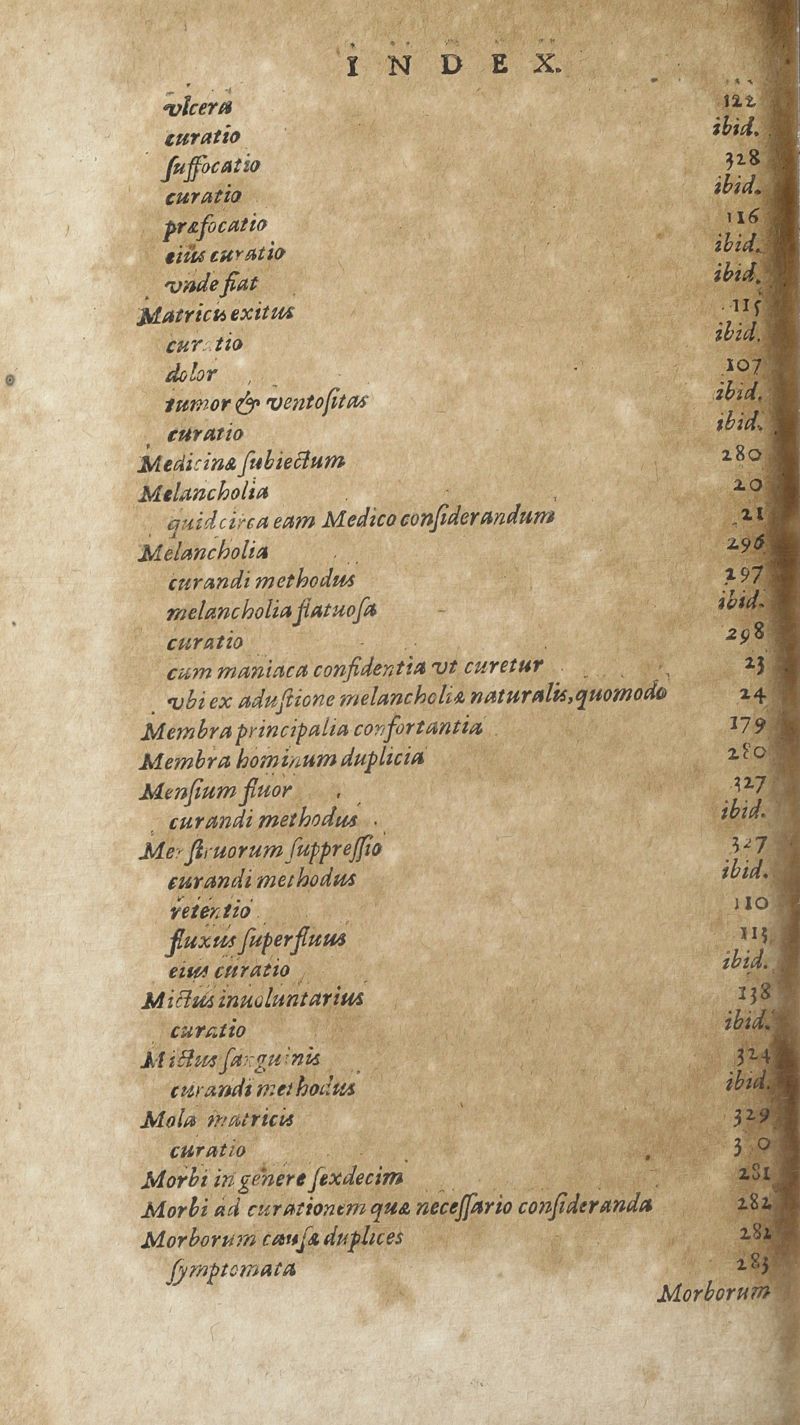 INDEX.
vlcera 122
curatio ibid.
ſuffocatio 328
curatio ibid.
præfocatio 116
eius curatio ibid.
vnde fiat ibid.
Matricis exitus 115
cur tio ibid.
dolor 107
tumor & ventoſitas ibid.
curatio ibid.
Medicinæ ſubiectum 280
Melancholia 20
quid circa eam Medico conſiderandum 21
Melancholia 296
curandi methodus 297
melancholia flatuoſa ibid.
curatio 298
cum maniaca confidentia vt curetur 23
vbi ex aduſtione melancholiæ naturalis, quomodo 24
Membra principalia confortantia 179
Membra hominum duplicia 280
Menſium fluor 327
curandi methodus ibid.
Menſtruorum ſuppreſſio 327
curandi methodus ibid.
retentio 110
fluxus ſuperfluus 113
eius curatio ibid.
Mictus inuoluntarius 138
curatio ibid.
Mictus ſanguinis 324
curandi methodus ibid.
Mola matricis 329
curatio 3 0
Morbi in genere ſexdecim 281
Morbi ad curationem quæ neceſſario conſideranda 282
Morborum cauſæ duplices 282
ſymptomata 283
Morborum